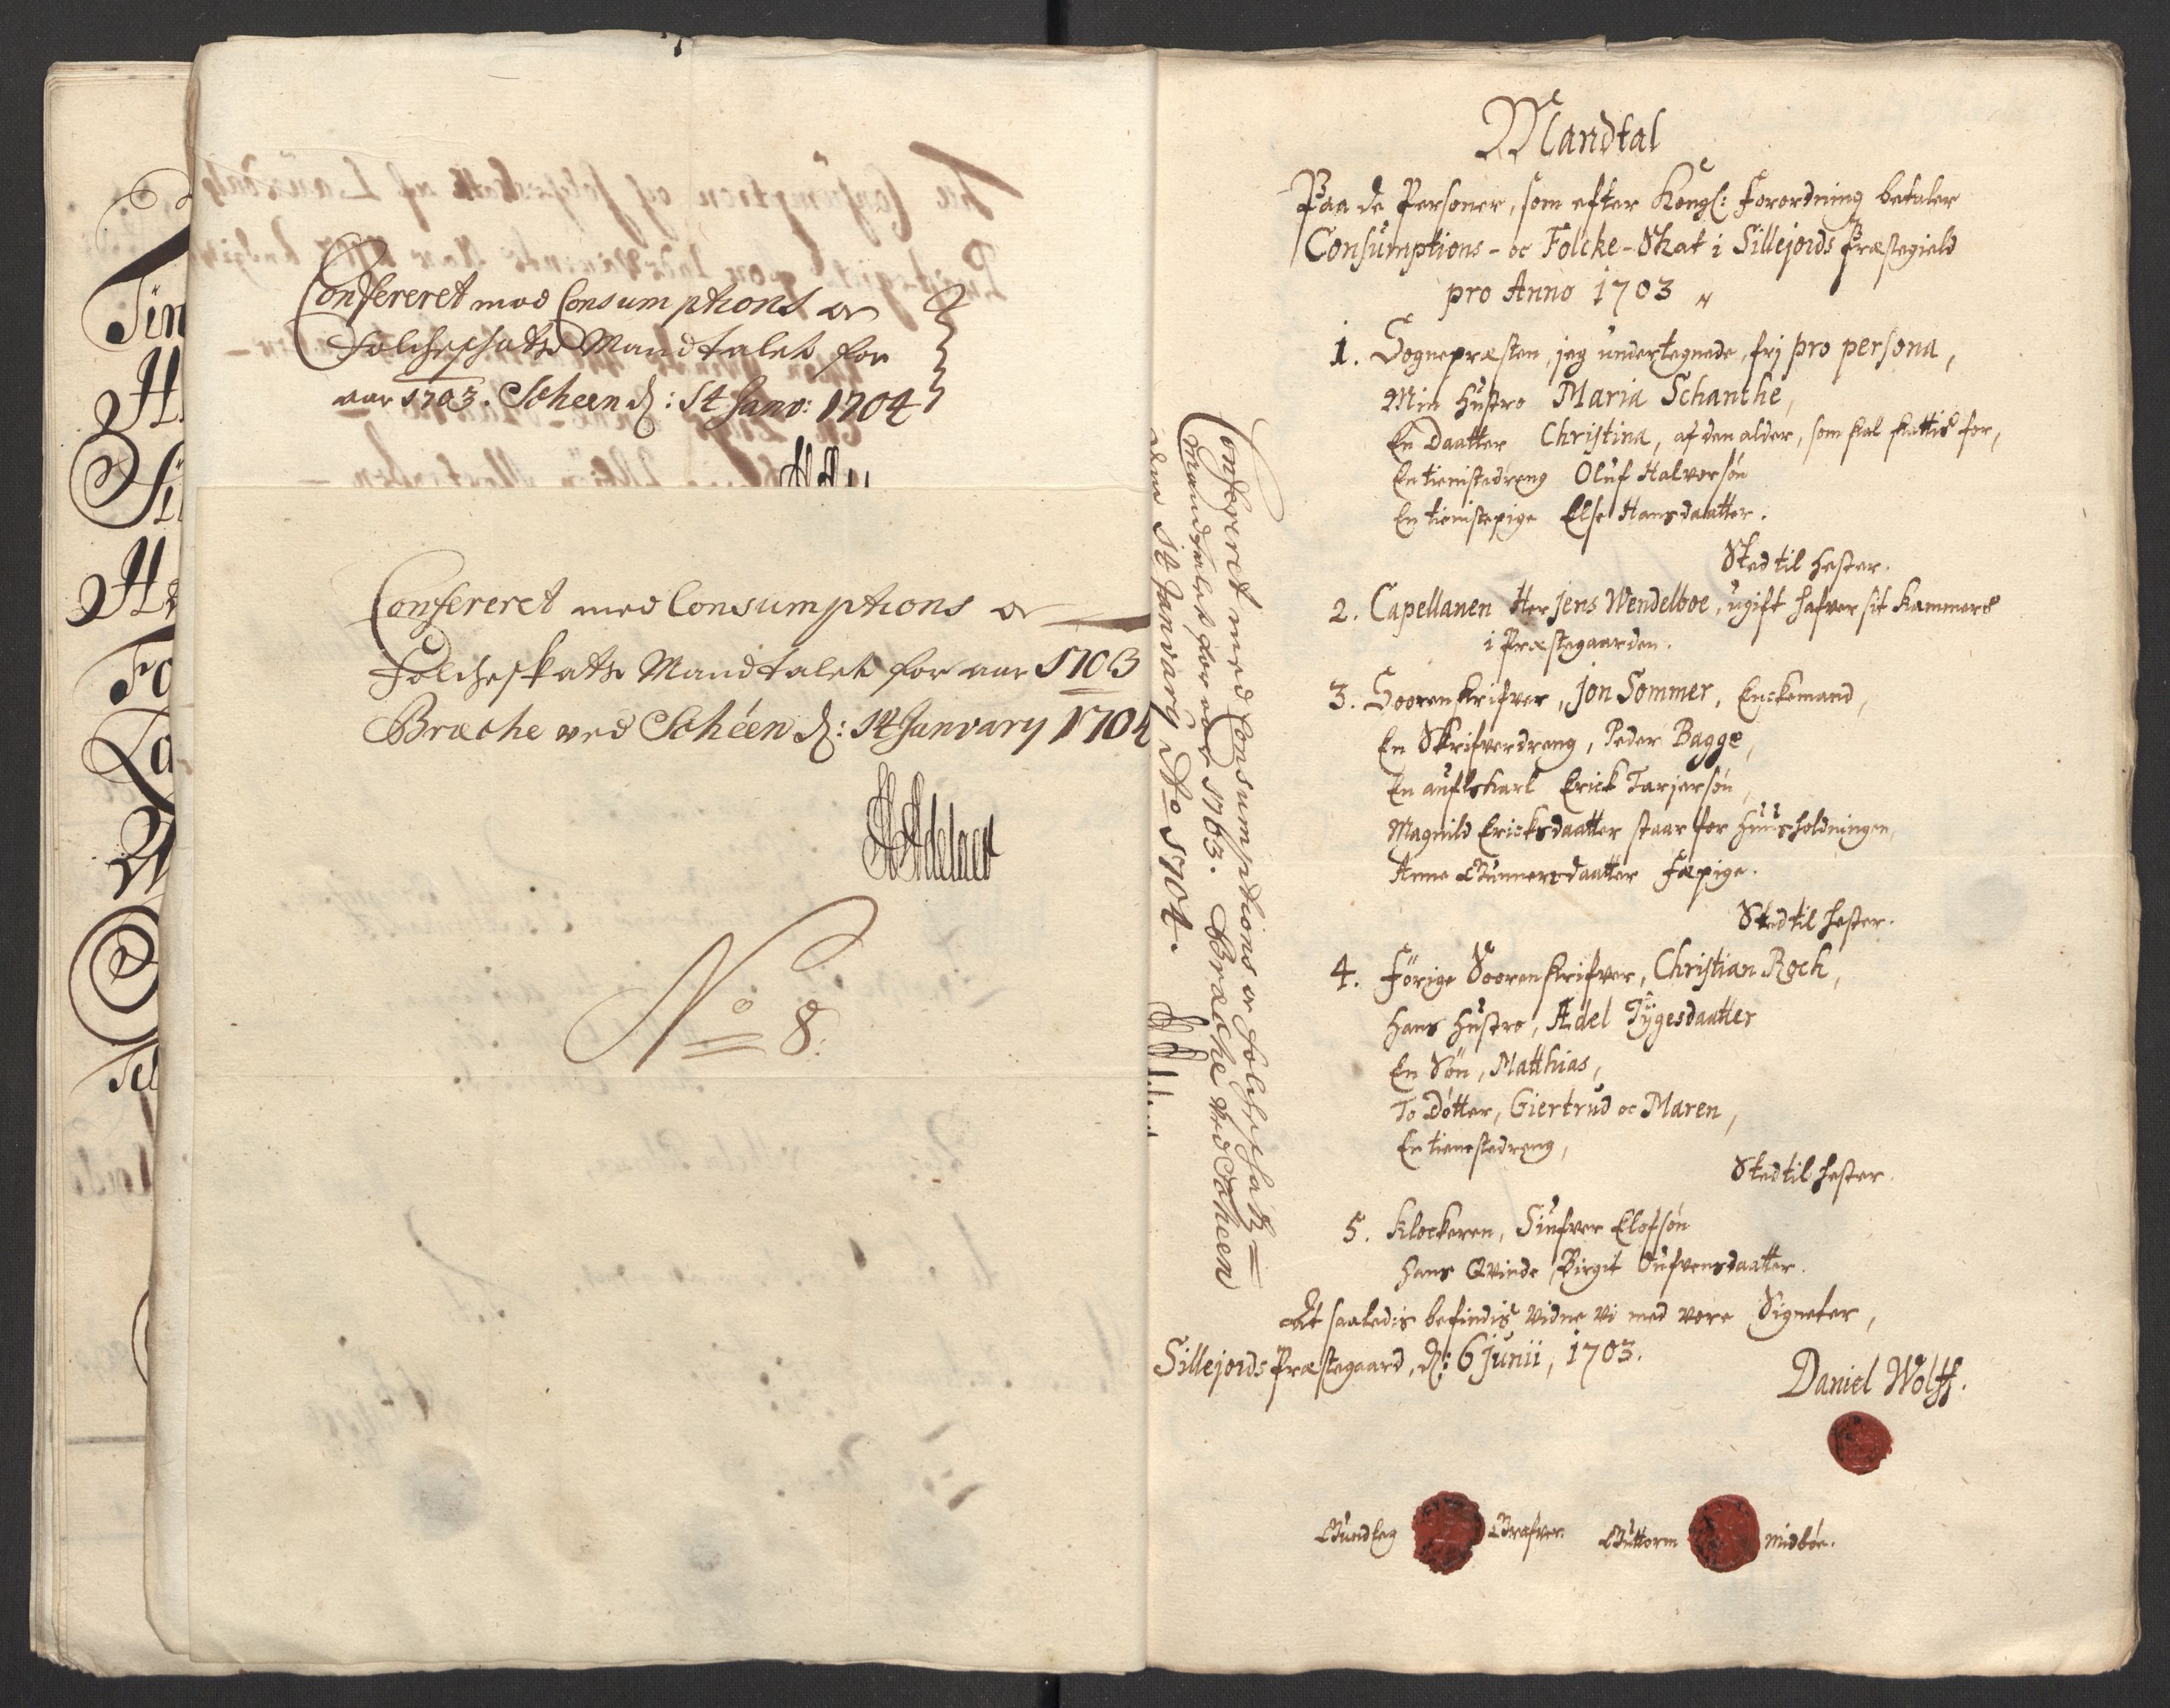 Confereret med Consumptions oc
Folcheschatz Mandtalet for
aar 1703. Scheen d: 1t Janv: 1704
Confereret med Consumptions oc
Folcheskatz Mandtalet for aar 1703
Bræche ved Schéen d: 1t January 1704
HAdelaer
No 8.
Confereret med Consumptions oc Folcheschatz
Mandtalet for aar 1703. Bræche ved Scheen
den 1t January Ao 1704.
Mandtal
Paa de Personer, som efter Kongl: Forordning betaler
Consumptions- oc Folcke-Skat i Sillejords Præstegield
pro Anno 1703
1. Sognepræsten, jeg undertegnede, frj pro persona,
Min Hustro Maria Schanche,
En Daatter Christina, af den alder, som skal skattis for,
En tienistedreng Oluf Halvorsøn
En tienistepige Else Hansdaatter.
Sted til hester.
2. Capellanen Her Jens Wendelboe, ugift hafver sit Kammers
i Præstegaarden.
3. Soorenskrifver, Jon Sommer, Enckemand,
En Skrifverdreng, Peder Bagge,
En aufls karl Erick Tarjersøn,
Magnild Ericksdaatter staar for huusholdningen,
Anne Gunnersdaatter Fæpige.
Sted til hester.
4. Forige Soorenskrifver, Christian Roch,
Hans Hustro, Adel Tygesdaatter
En Søn, Matthias,
To Døtter, Giertrud oc Maren,
En tienestedreng,
Sted til hester.
5. Klockeren, Siufver Elofsøn
Hans Qvinde Birgit Oufvensdaatter.
At saaledis befindis vidne vi med vore Signeter,
Sillejords Præstegaard, d: 6 Junii, 1703.
Daniel Wolff.
Gundleg Grafver. Guttorm Midbøe.